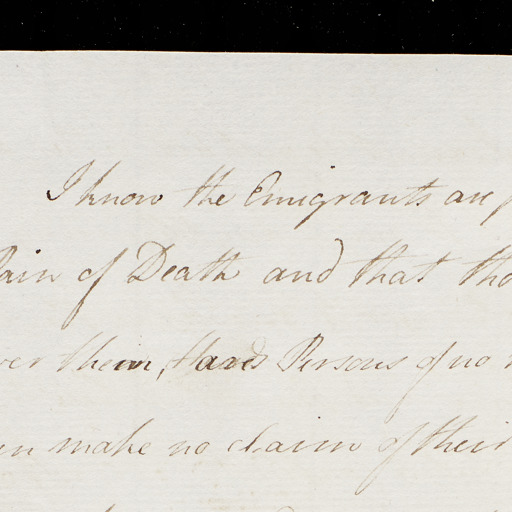 I know the Emigrants are
Pain of Death and that
them, Persons of no
make no claim of their